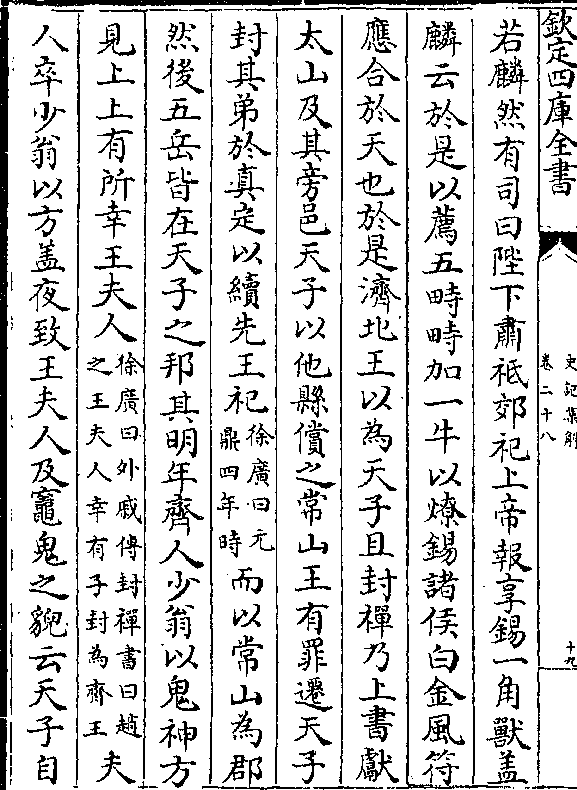 欽定四庫全書
史記集解
卷二十八
十九
若麟然有司曰陛下肅祗郊祀上帝報享錫一角獸盖
麟云於是以薦五畤畤加一牛以燎錫諸侯白金風符
應合於天也於是濟北王以為天子且封禪乃上書獻
太山及其旁邑天子以他縣償之常山王有罪遷天子
封其弟於真定以續先王祀徐廣曰元鼎四年時而以常山為郡
然後五岳皆在天子之邦其明年齊人少翁以鬼神方
見上上有所幸王夫人徐廣曰外戚傳封禪書曰趙之王夫人幸有子封為齊王夫
人卒少翁以方盖夜致王夫人及竈鬼之貌云天子自